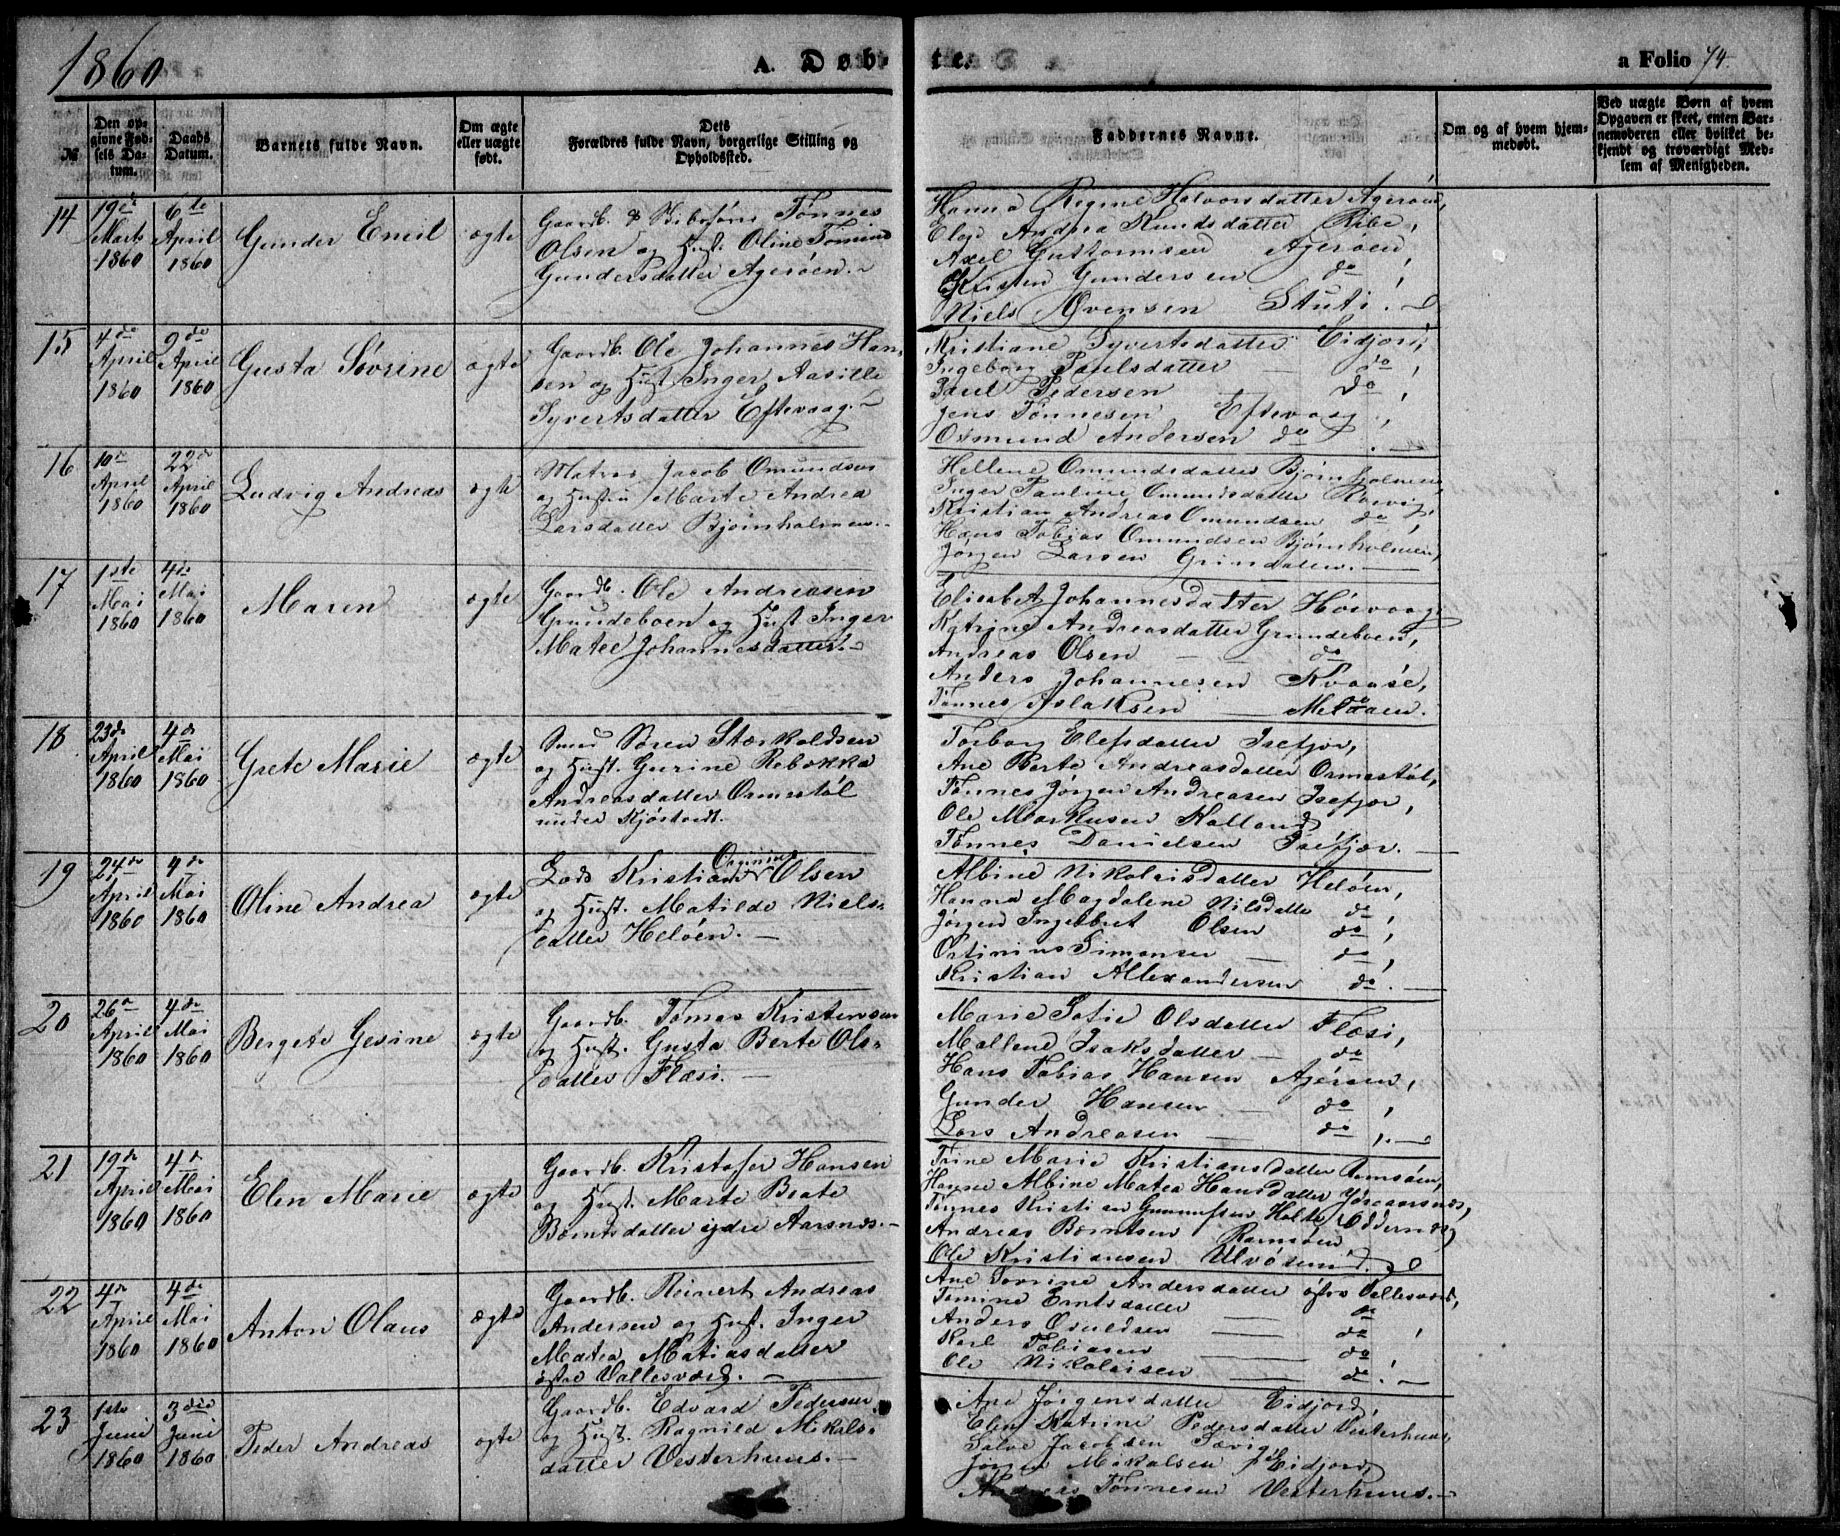 1860
A. Døbte.
a Folio 74.
№
Den opgivne Fødsels Datum.
Daabs Datum.
Barnets fulde Navn.
Om ægte eller uægte født.
Dets Forældres fulde Navn, borgerlige Stilling og Opholdssted.
Faddernes Navne.
Om og af hvem hjemmedøbt.
Ved uægte Børn af hvem Opgaven er skeet, enten Barnemoderen eller hvilket bekjendt og troværdigt Medlem af Menigheden.
14
19de Marts 1860
6te April 1860
Gunder Emil
ægte
Gaardb. & Tønnes
Olsen og Hust. Oline Tomine
Gundersdatter Agerøen.
Hanna Regine Halvorsdatter Agerøen,
Andrea Knudsdatter Ribe,
Axel Guttormsen Agerøen,
Kristen Gundersen do,
Niels Evensen Stuti.
15
4de April 1860
9de April 1860
Gusta Søvrine
ægte
Gaardb. Ole Johannes Han-
sen og Hust. Inger Aasille
Syvertsdatter Eftevaag.
Kristiane Syvertsdatter Eidjord,
Ingeborg Paulsdatter do,
Paul Pedersen do,
Jens Tønnesen Eftevaag,
Osmund Andersen do.
16
10de April 1860
22de April 1860
Ludvig Andreas
ægte
Matros Jacob Omundsen
og Hustru Marte Andrea
Larsdatter Bjørnholmen.
Hellene Omundsdatter Bjørnholmen,
Inger Pauline Omundsdatter
Kristian Andreas Omundsen do,
Hans Tobias Omundsen Bjørnholmen,
Jørgen Larsen Grindalen.
17
1ste Mai 1860
4de Mai 1860
Maren
ægte
Gaardb. Ole Andreasen
Grundeboen og Hust. Inger
Matee Johannesdatter.
Elisabet Johannesdatter Høivaag,
Katrine Andreasdatter Grundeboen,
Andreas Olsen do,
Anders Johannesen Kvaase,
Tønnes Aslaksen
18
23de April 1860
4de Mai 1860
Grete Marie
ægte
Smed Søren Stærkoldsen
og Hust. Gurine Rebekka
Andreasdatter Ormestøl
under Kjøstvedt.
Torborg Elefsdatter Isefjær,
Ane Berte Andreasdatter Ormestøl,
Tønnes Jørgen Andreasen Isefjær,
Ole Markusen Kalland,
Tønnes Danielsen Isefjær.
19
24de April 1860
4de Mai 1860
Oline Andrea
ægte
Lods Kristian Olsen
og Hust. Matilde Niels-
datter Heløen.
Albine Nikolaisdatter Heløen,
Hanna Magdalene Nilsdatter do,
Jørgen Ingebret Olsen do,
Ortinius Simonsen do,
Kristian Allexandersen do.
20
26de April 1860
4de Mai 1860
Bergete Gesine
ægte
Gaardb. Tomas Kristensen
og Hust. Gusta Berte Ols-
datter Flasi.
Marie Sofie Olsdatter Flasi,
Mallene Isaksdatter do
Hans Tobias Hansen Agerøen,
Gunder Hansen do,
Lars Andreasen do,
21
19de April 1860
4de Mai 1860
Elen Marie
ægte
Gaardb. Kristofer Hansen
og Hust. Marte Beate
Berntsdatter ydre Aarsnes.
Trine Marie Kristiansdatter Ramsøen,
Hanne Albine Matea Hansdatter
Tønnes Kristian Gunnufsen Holte Oddernes,
Andreas Berntsen Ramsøen,
Ole Kristiansen Ulvøsund.
22
4de April 1860
4de Mai 1860
Anton Olaus
ægte
Gaardb. Reinert Andreas
Andersen og Hust. Inger
Matea Matiasdatter
østre Vallesværd.
Ane Sovrine Andersdatter østre Vallesværd,
Tomine Erntsdatter do
Anders Osuldsen do,
Karl Tobiasen do
Ole Nikolaisen do.
23
1ste Juni 1860
3die Juni 1860
Peder Andreas
ægte
Gaardb. Edvard Pedersen
og Hust. Ragnild Mikals-
datter Vesterhuus.
Ane Jørgensdatter Eidjord,
Elen Katrine Pedersdatter Vesterhuus,
Salve Jacobsen Sævig,
Jørgen Mikalsen Eidjord,
Andreas Tønnesen Vesterhuus.